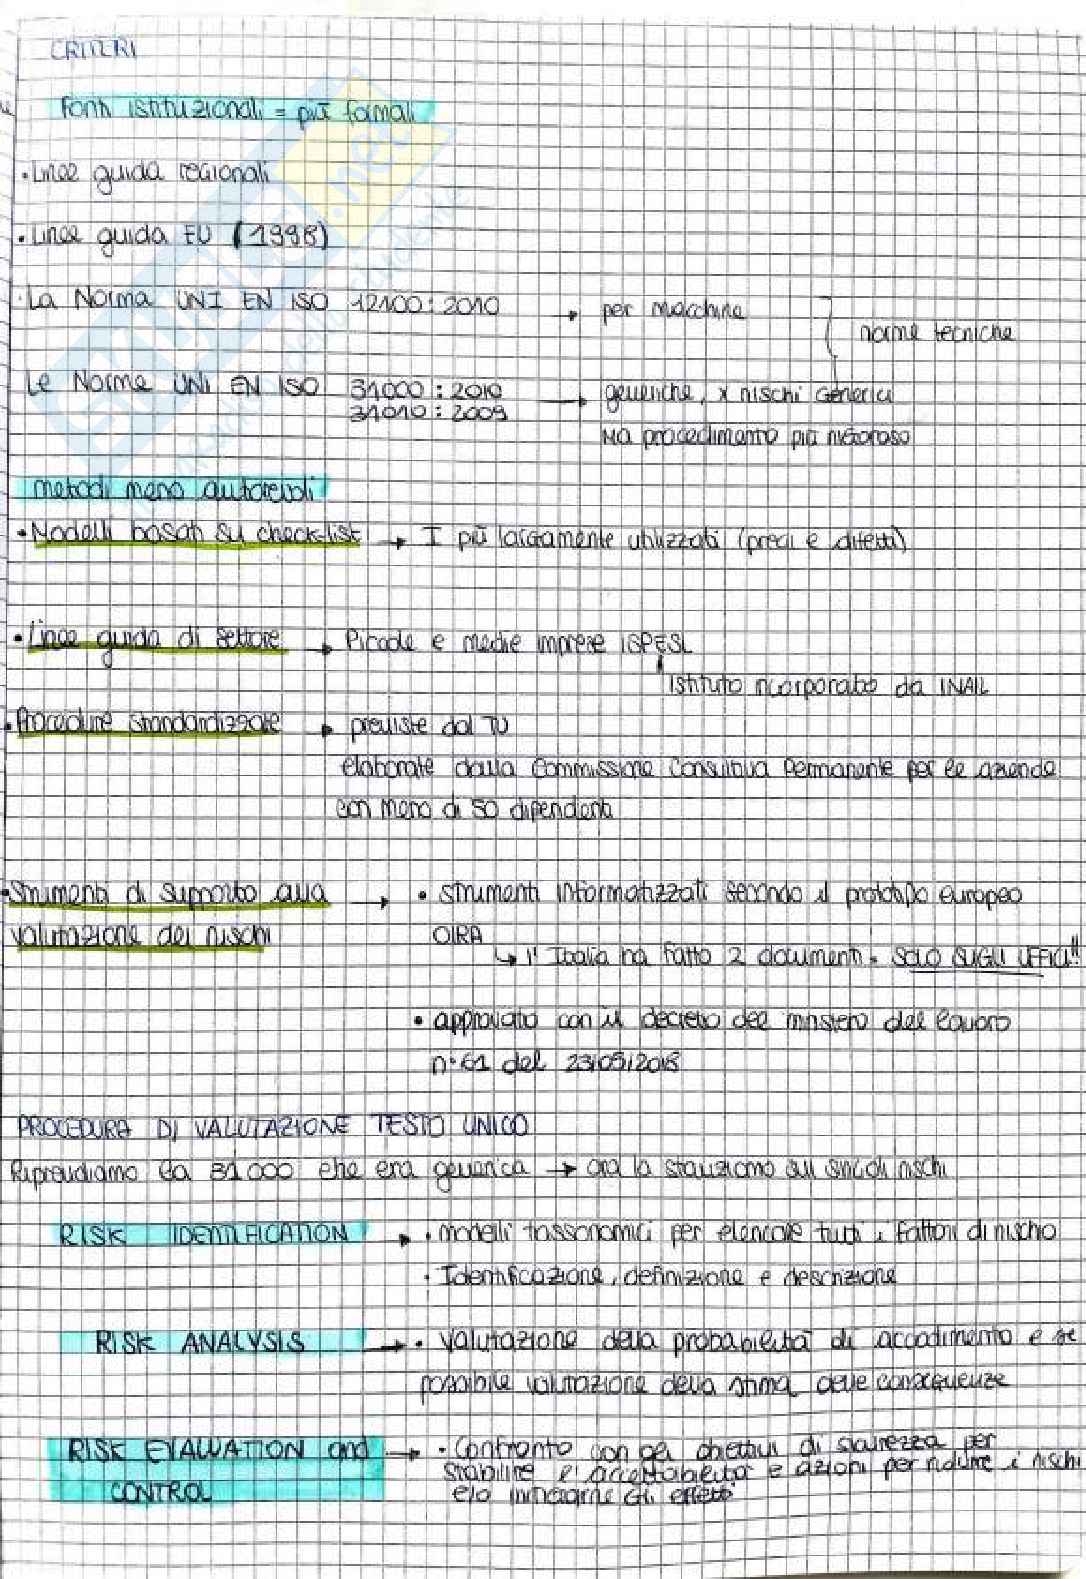 CRITERI
Fonti istituzionali = più formali
• Linee guida regionali
• Linee guida EU (1998)
• La Norma UNI EN ISO 12100:2010 → per macchine
norme tecniche
Le Norme UNI EN ISO 31000:2010 → generiche, x rischi generici
31010:2009
Ma procedimento più rigoroso
metodi meno autorevoli
• Modelli basati su check-list → I più largamente utilizzati (pregi e difetti)
• Linee guida di settore → Piccole e medie imprese ISPESL
Istituto incorporato da INAIL
• Procedure standardizzate → previste dal TU
elaborate dalla Commissione Consultiva Permanente per le aziende
con meno di 50 dipendenti
• Strumenti di supporto alla → • strumenti informatizzati secondo il prototipo europeo
valutazione dei rischi OIRA
↳ l'Italia ha fatto 2 documenti. SOLO SUGLI UFFICI!!
• approvato con il decreto del ministero del lavoro
n°61 del 23/05/2018
PROCEDURA DI VALUTAZIONE TESTO UNICO
Riprendiamo la 31000 che era generica → ora la stauziamo sui singoli rischi
RISK IDENTIFICATION → • modelli tassonomici per elencare tutti i fattori di rischio
• Identificazione, definizione e descrizione
RISK ANALYSIS → • valutazione della probabilità di accadimento e se
possibile valutazione della stima delle conseguenze
RISK EVALUATION and → • Confronto con gli obiettivi di sicurezza per
CONTROL stabilire l'accettabilità e azioni per ridurre i rischi
e/o mitigarne gli effetti